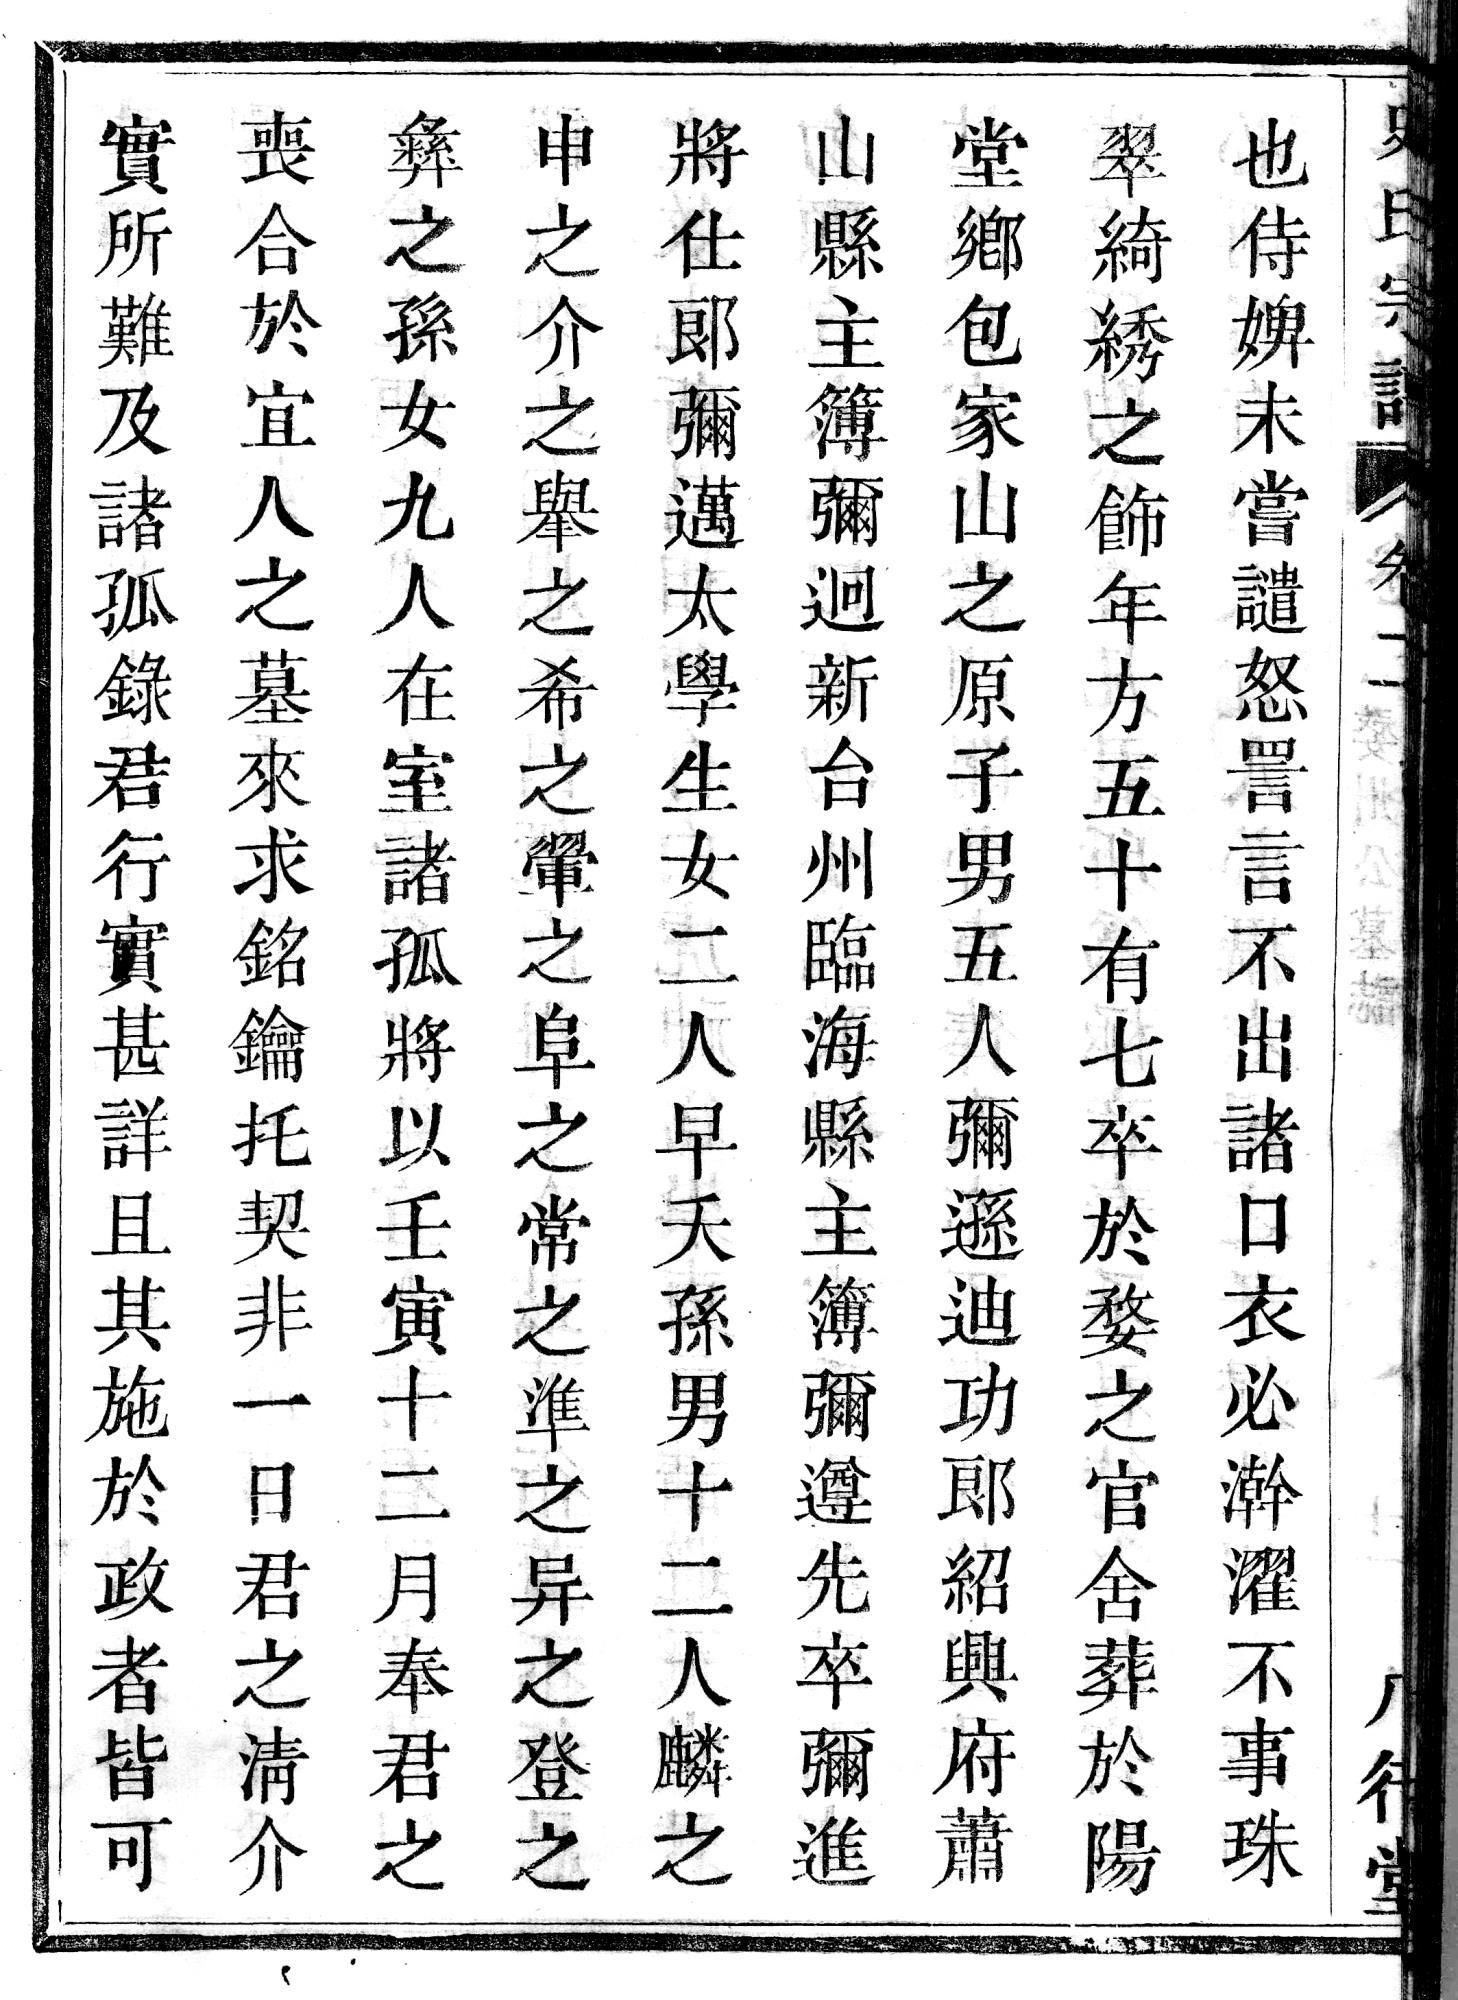 史氏宗譜 卷二 婺州公墓誌 八行堂
也侍婢未嘗譴怒詈言不出諸口衣必澣濯不事珠
翠綺綉之飾年方五十有七卒於婺之官舍葬於陽
堂鄉包家山之原子男五人彌遜迪功郎紹興府蕭
山縣主簿彌迥新台州臨海縣主簿彌遵先卒彌進
將仕郎彌邁太學生女二人早夭孫男十二人麟之
申之介之舉之希之鞏之阜之常之準之异之登之
彝之孫女九人在室諸孤將以壬寅十二月奉君之
喪合於宜人之墓來求銘鑰托契非一日君之清介
實所難及諸孤錄君行實甚詳且其施於政者皆可